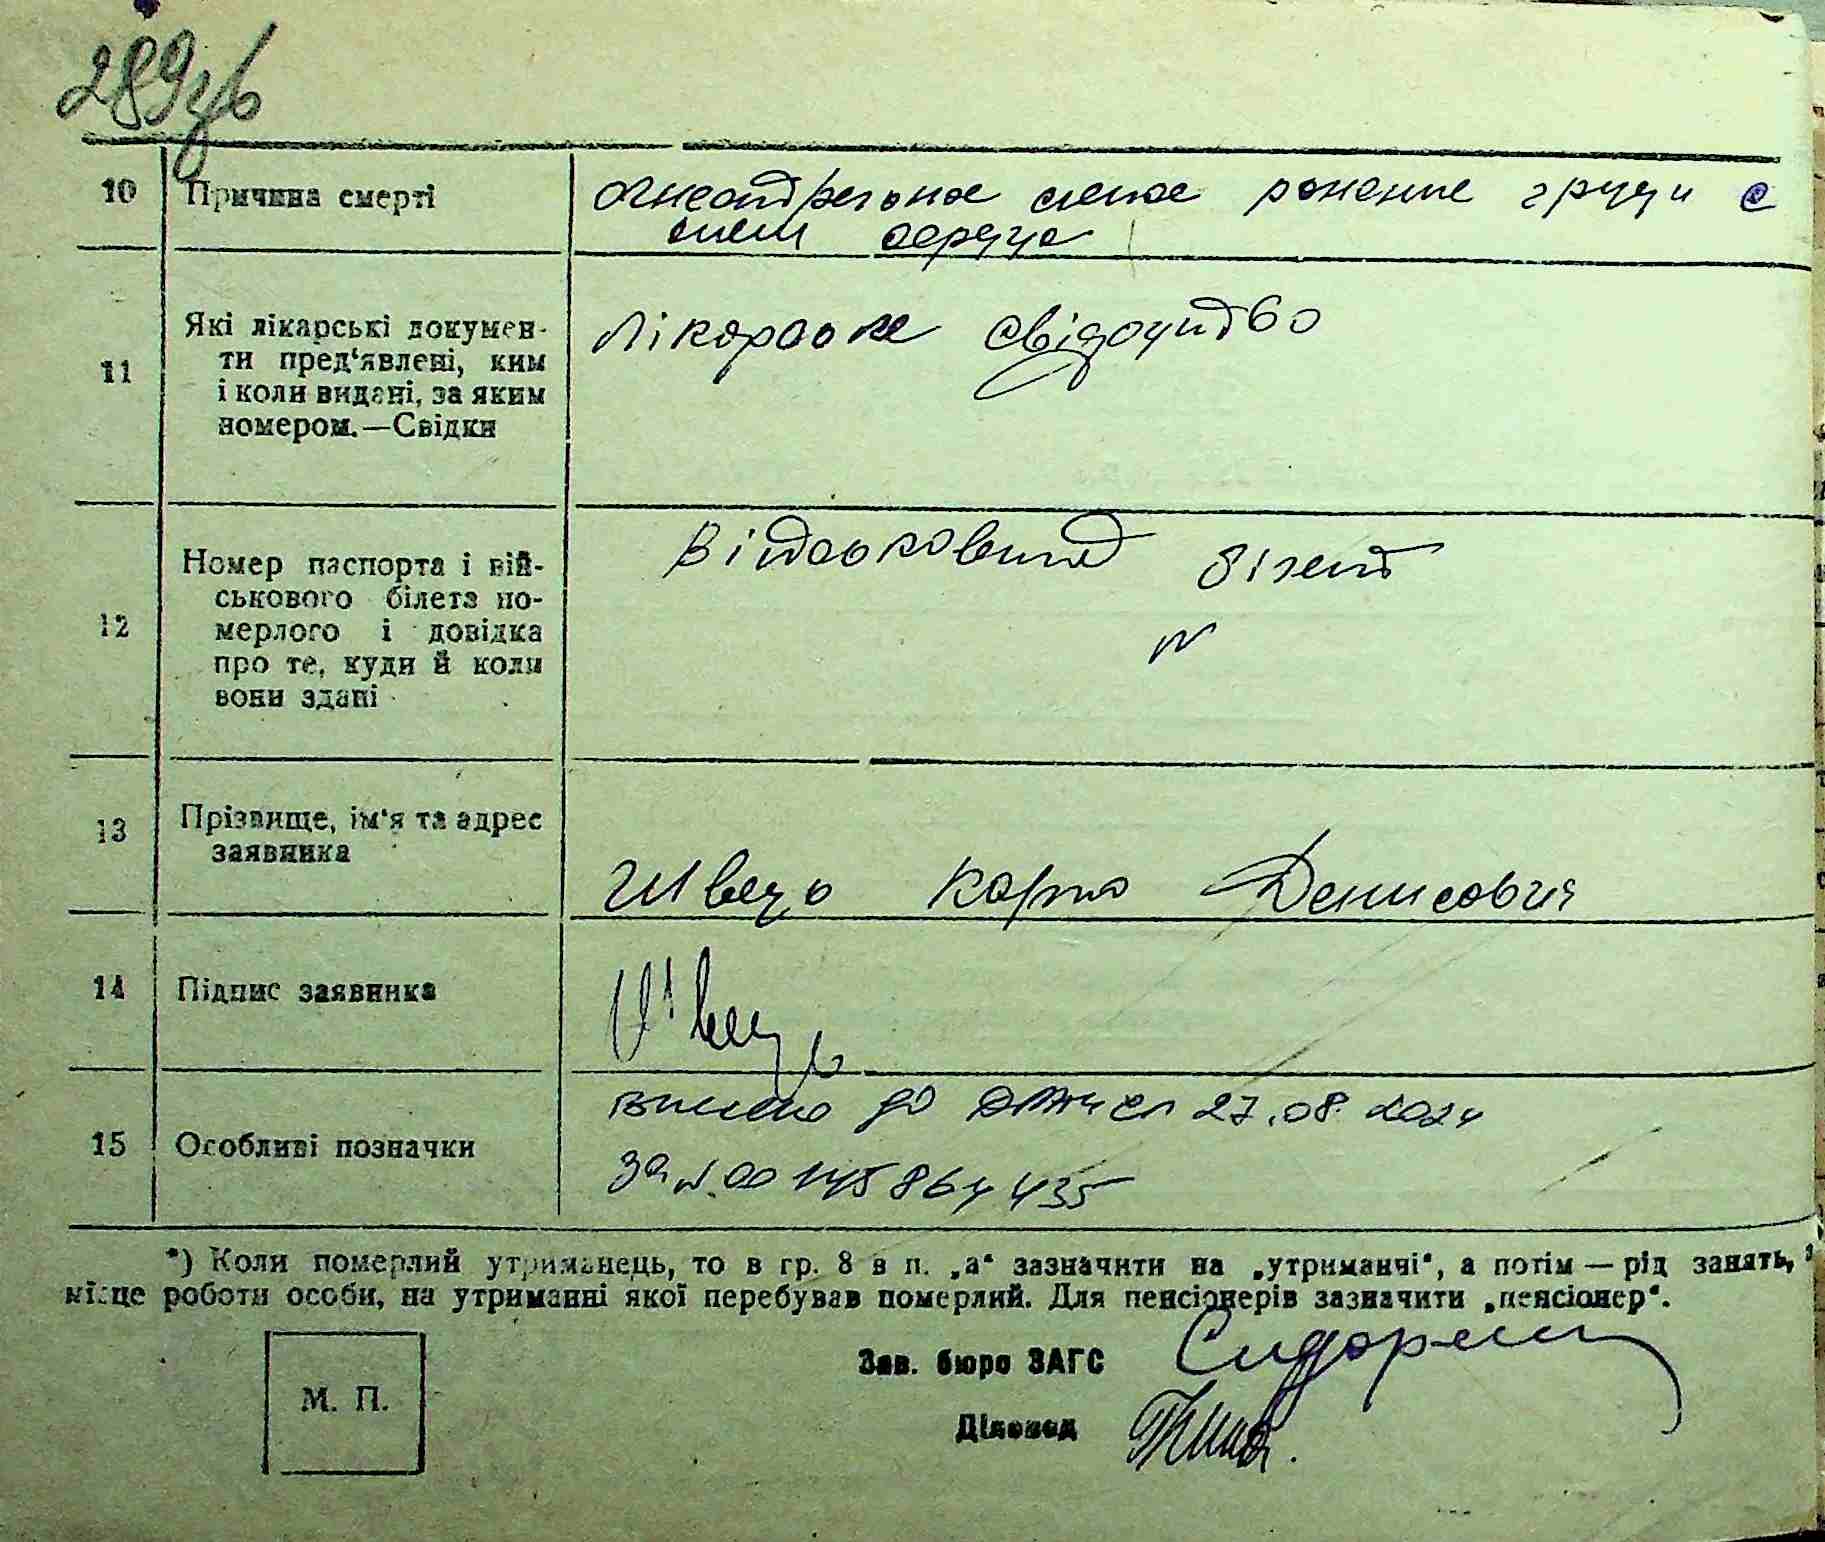 289
10 Причина смерті
огнестрельное слепое ранение груди с
сердца
11 Які лікарські докумен-
ти пред'явлені, ким
і коли видані, за яким
номером.—Свідки
Лікарське свідоцтво
12 Номер паспорта і вій-
ськового білета по-
мерлого і довідка
про те, куди й коли
вони здані
Військовий білет
N
13 Прізвище, ім'я та адрес
заявника
Швець Карпо Денисович
14 Підпис заявника
Швець
15 Особливі позначки
внесено до ДРАЦС 27.08.2024
за № 00145864435
*) Коли померлий утриманець, то в гр. 8 в п. „а“ зазначити на „утриманчі“, а потім — рід занять,
місце роботи особи, на утриманні якої перебував померлий. Для пенсіонерів зазначити „пенсіонер“.
М. П.
Зав. бюро ЗАГС
Діловод